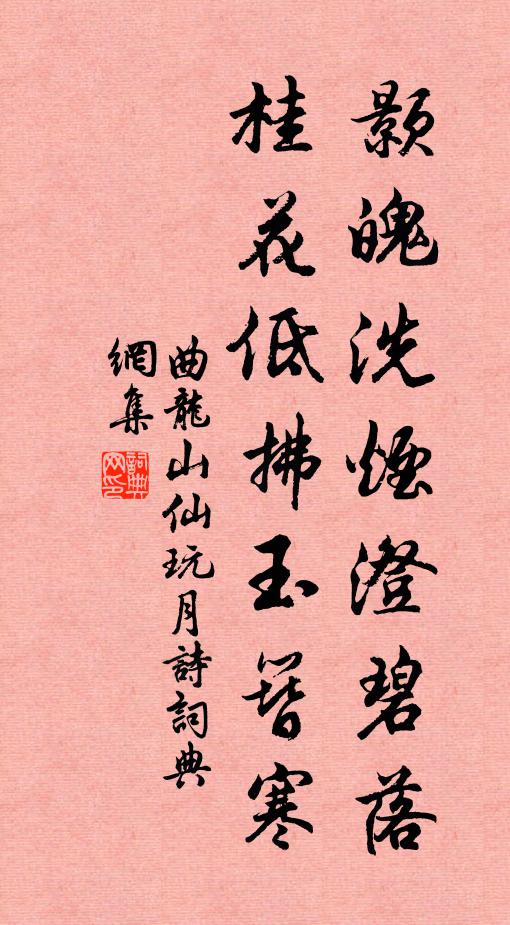 顥魄洗煙澄碧落
桂花低拂玉簪寒
曲龍山仙玩月詩詞典
網集
詞典
网印